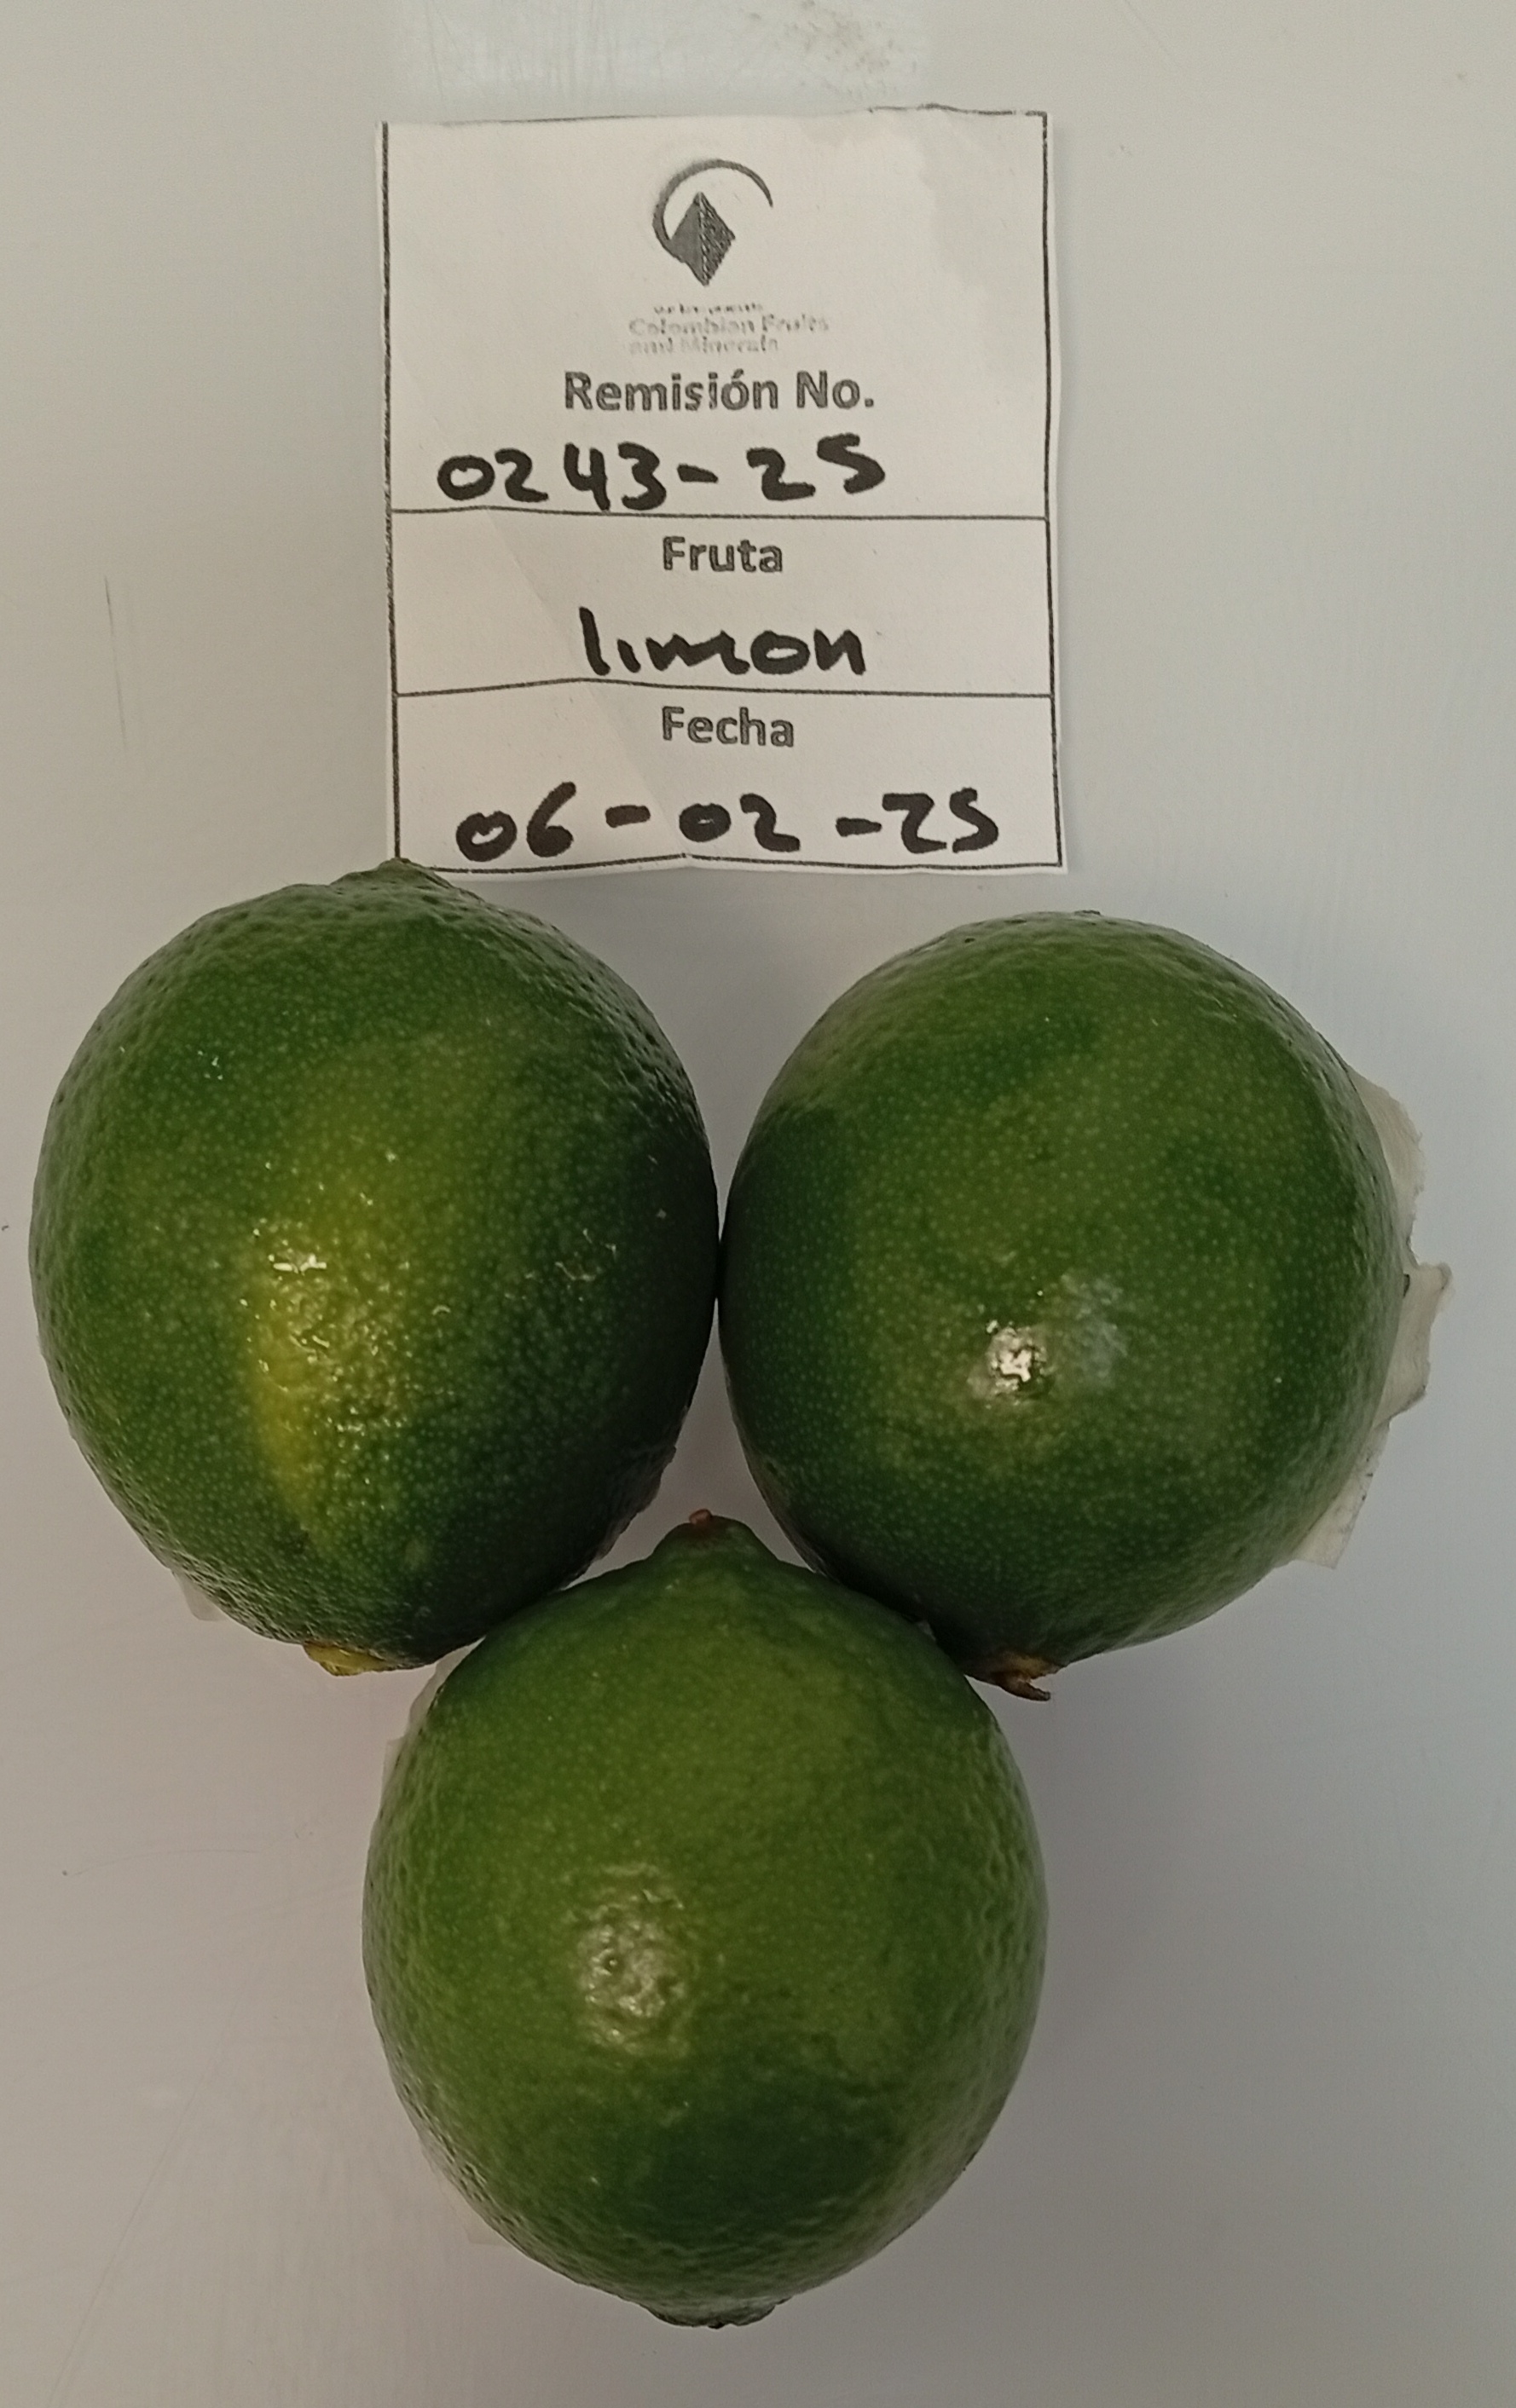 Colombian Fruits
and Minerals
Remisión No.
0243-25
Fruta
limon
Fecha
06-02-25